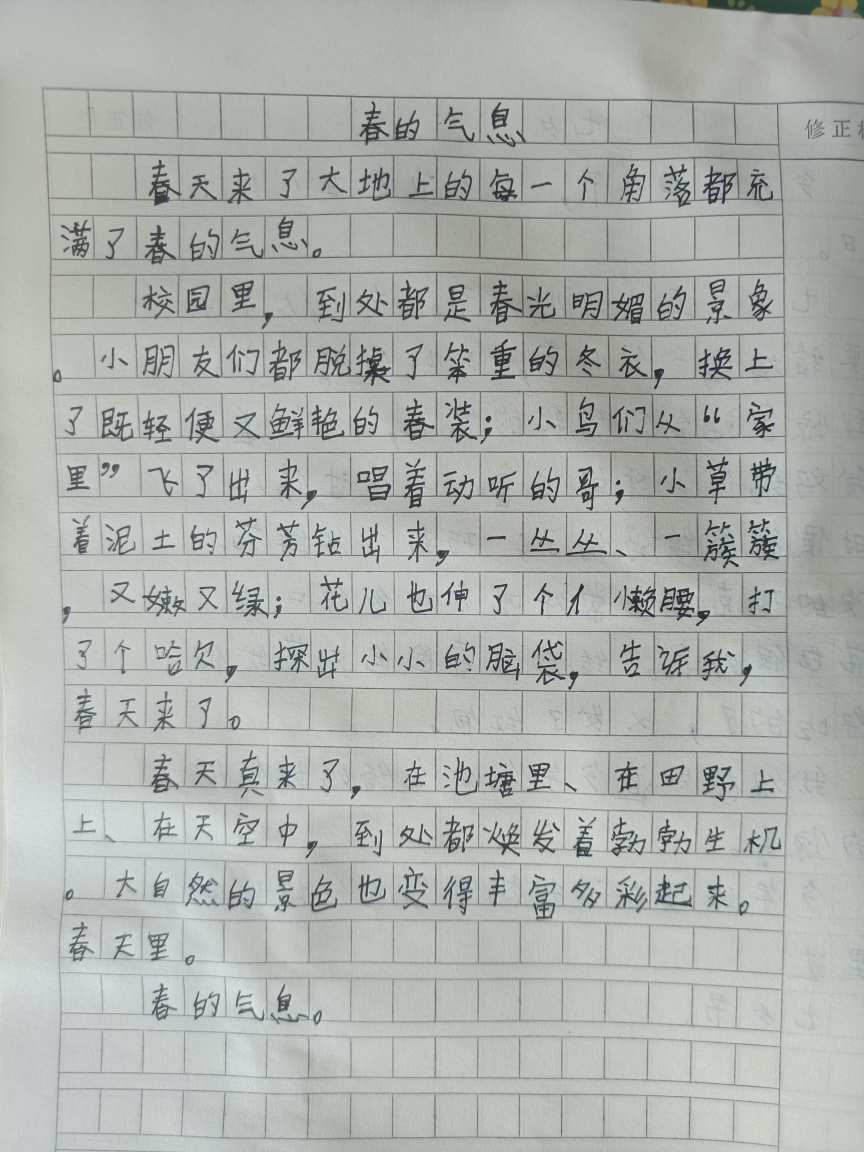 春的气息
修正
春天来了大地上的每一个角落都充
满了春的气息。
校园里，到处都是春光明媚的景象
。小朋友们都脱掉了笨重的冬衣，换上
了既轻便又鲜艳的春装；小鸟们从“家
里”飞了出来，唱着动听的哥；小草带
着泥土的芬芳钻出来，一丛丛、一簇簇
，又嫩又绿；花儿也伸了个懒腰，打
了个哈欠，探出小小的脑袋，告诉我，
春天来了。
春天真来了，在池塘里、在田野上
上、在天空中，到处都焕发着勃勃生机
。大自然的景色也变得丰富多彩起来。
春天里。
春的气息。